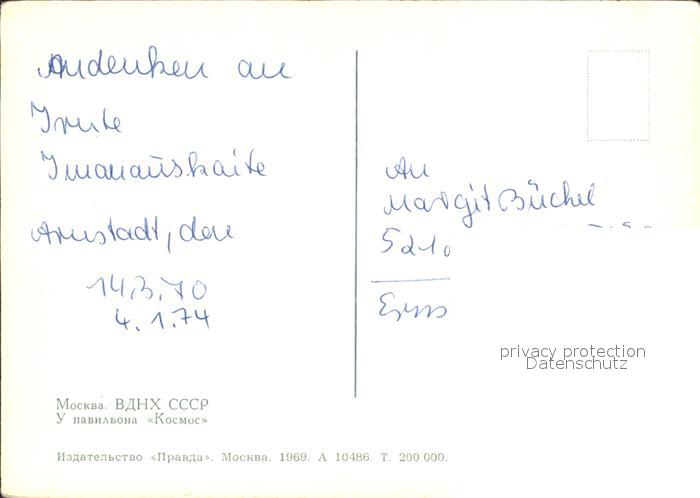 Andenken an
Irute
Imanauskaite
Arnstadt, den
14.3.70
4. 1.74
An
Margit Büchel
5210
privacy protection
Datenschutz
Москва. ВДНХ СССР
У павильона «Космос»
Издательство «Правда». Москва. 1969. А 10486. Т. 200 000.